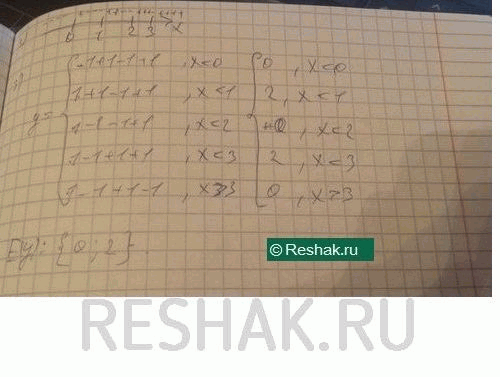 0 1 2 3 x
y=
-1+1-1+1 , x<0 0 , x<0
1+1-1+1 , x<1 2, x<1
1-1-1+1 , x<2 0, x<2
1-1+1+1 , x<3 2 , x<3
1-1+1-1 , x≥3 0 , x≥3
© Reshak.ru
E(y): {0; 2}.
RESHAK.RU